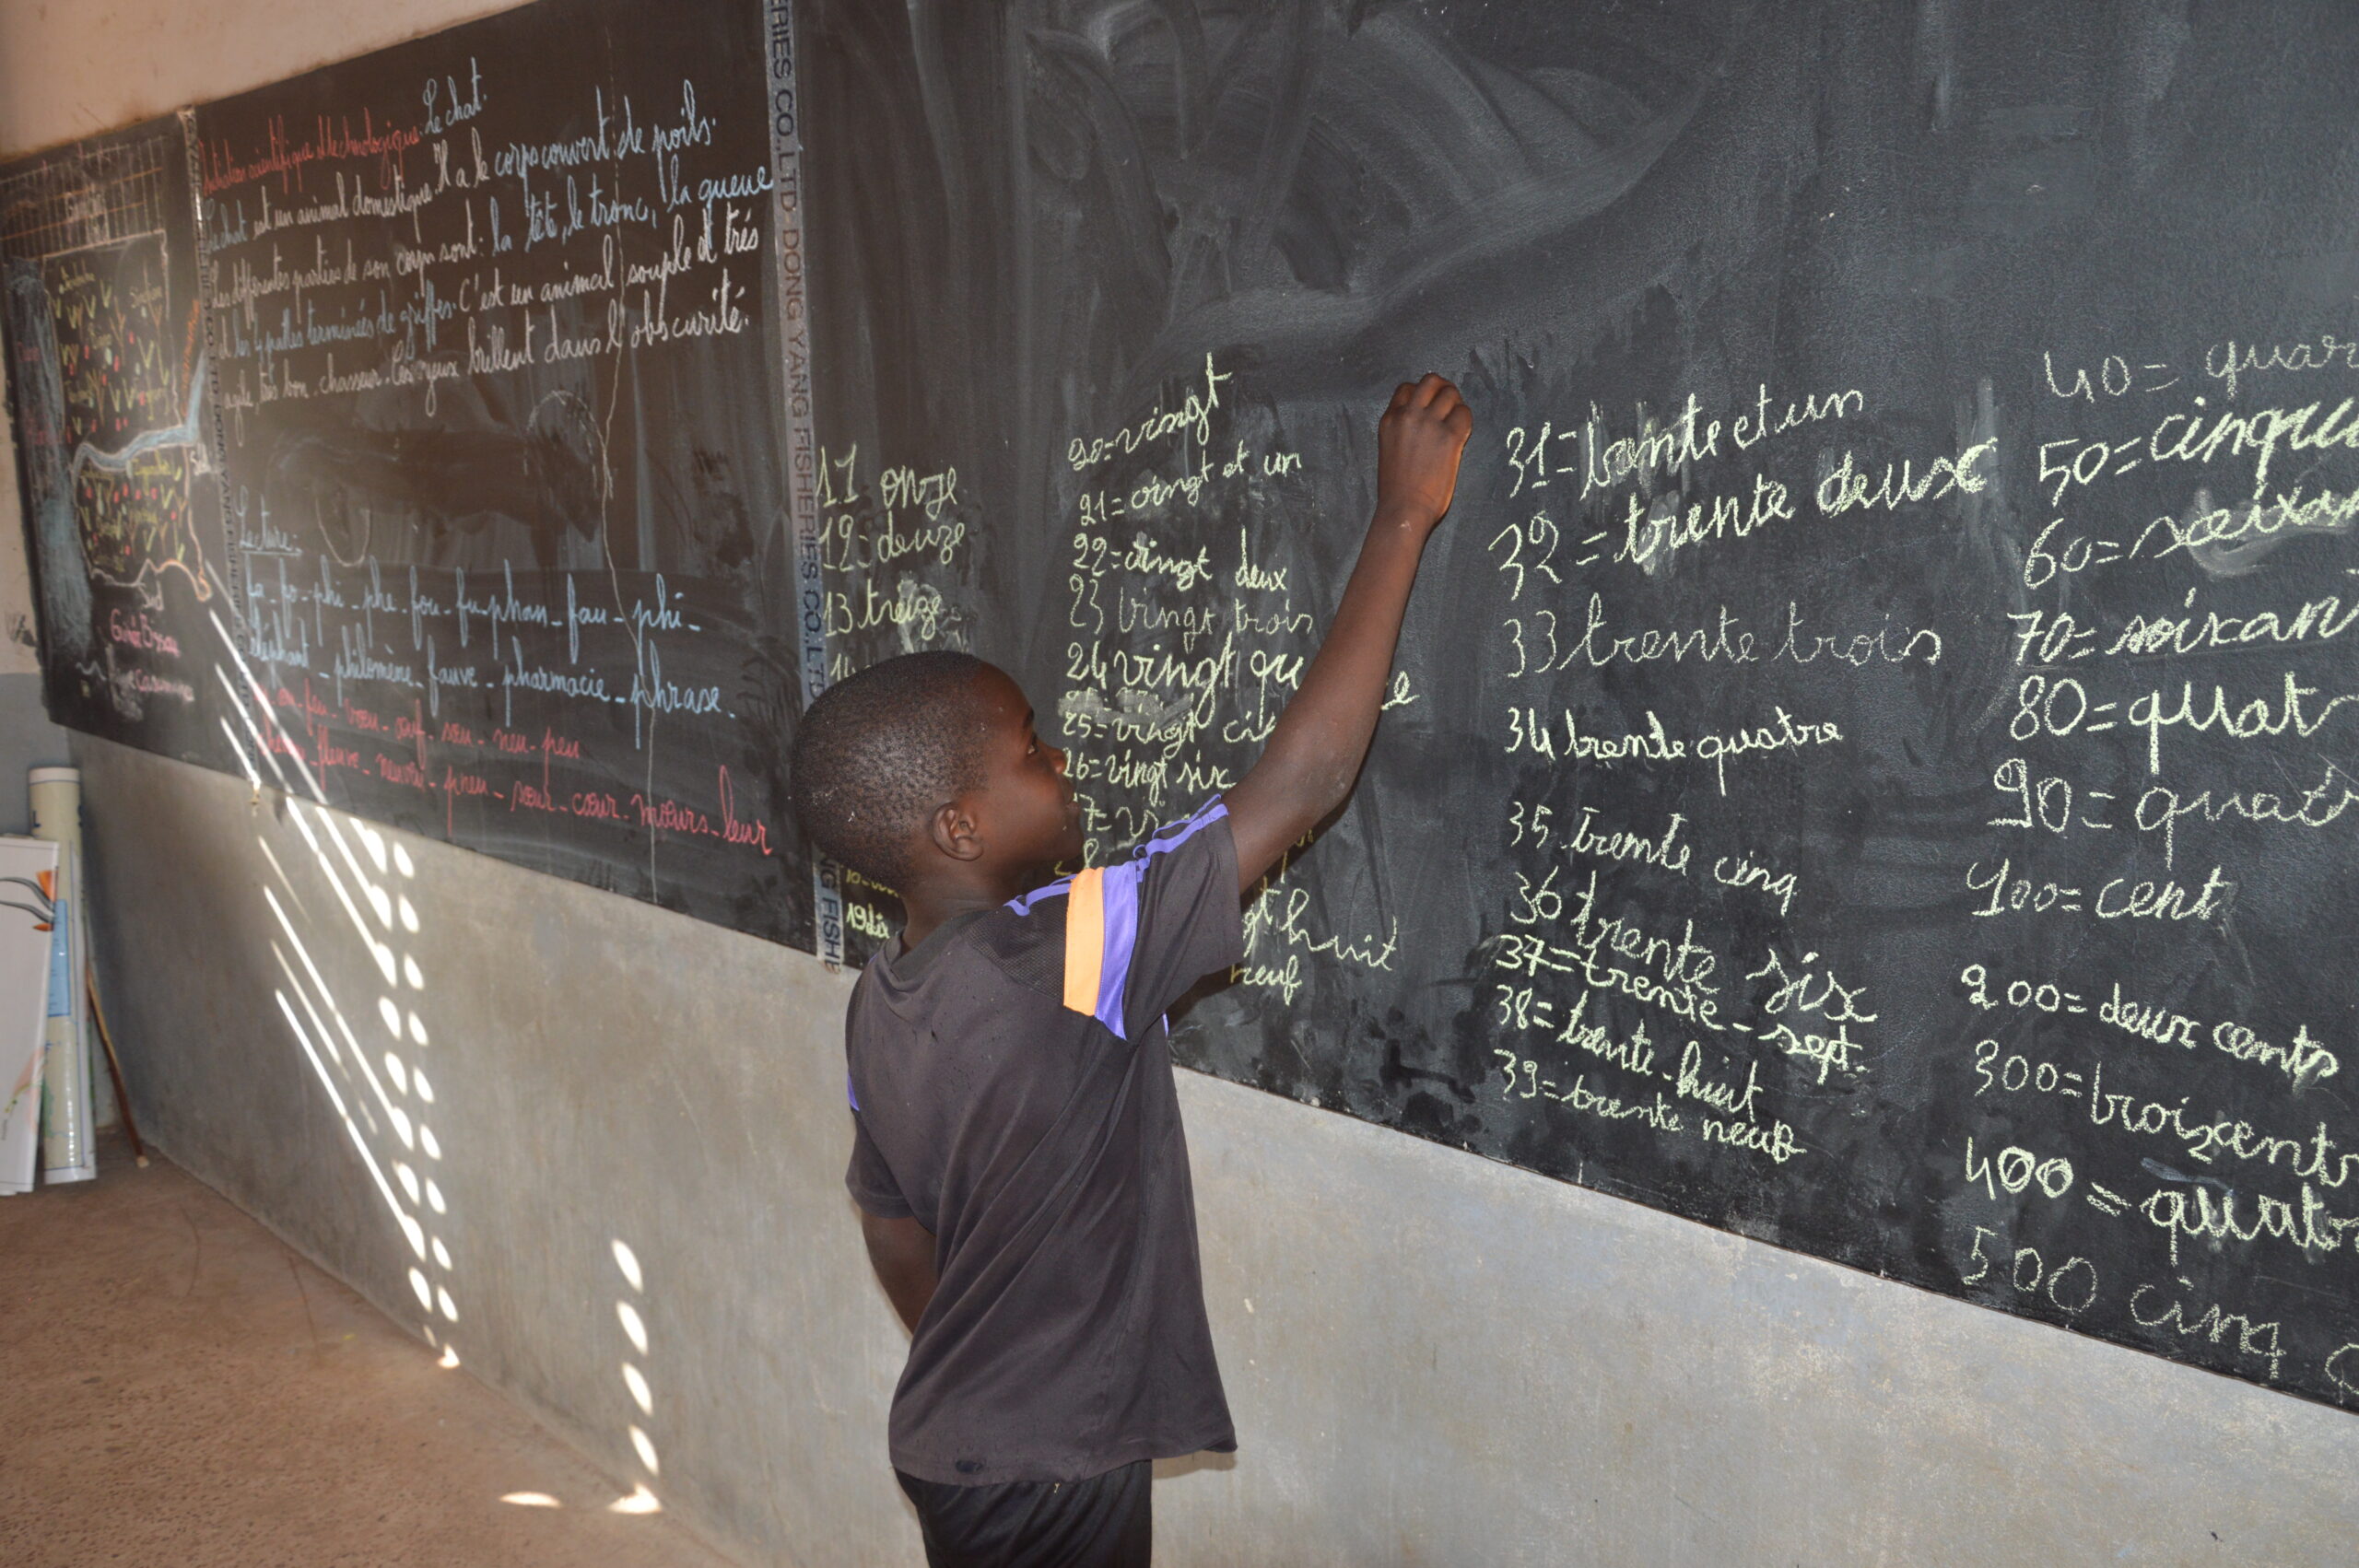 Gambie
Sud
Guinée Bissau
Initiation scientifique et technologique: Le chat.
Le chat est un animal domestique. Il a le corps couvert de poils.
Les différentes parties de son corps sont: la tête, le tronc, la queue
et les 4 pattes terminées de griffes. C'est un animal souple et très
agile, très bon chasseur. Ces yeux brillent dans l'obscurité.
Lecture:
fo - phi - phe - fou - fu - phan - fau - phi -
éléphant - philomène - fauve - pharmacie - phrase.
feu - sou - neu - peu
fleuve - neuvi - pneu - sœur - cœur - mœurs - leur
RIES CO.,LTD DONG YANG FISHERIES CO.,LTD
NG FISHE
11 onze
12 = deuze
13 treize
19 dix
20 = vingt
21 = vingt et un
22 = vingt deux
23 vingt trois
24 vingt qu
25 = vingt ci
26 = vingt six
huit
neuf
31 = trente et un
32 = trente deux
33 trente trois
34 trente quatre
35 trente cinq
36 trente six
37 = trente - sept.
38 = trente - huit
39 = trente neuf
40 = quar
50 = cinqu
60 = soixan
70 = soixant
80 = quat
90 = quatr
100 = cent
200 = deux cents
300 = trois cents
400 = quatr
500 cinq